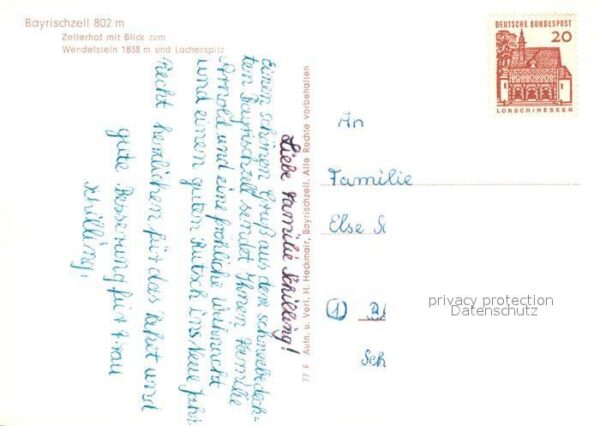 Bayrischzell 802 m
Zellerhof mit Blick zum
Wendelstein 1838 m und Lacherspitz
Liebe Familie Schilling!
Einen schönen Gruß aus dem schneebedeck-
ten Bayrischzell sendet Ihnen Familie
Arnold und eine fröhliche Weihnacht
und einen guten Rutsch ins Neue Jahr
Recht herzlichen für das Paket und
gute Besserung für Frau
Schilling,
77 F Aufn. u. Verl. H. Heckmair, Bayrischzell. Alle Rechte vorbehalten
DEUTSCHE BUNDESPOST
20
LORSCH/HESSEN
An
Familie
Else S
(1)
Sch
privacy protection
Datenschutz